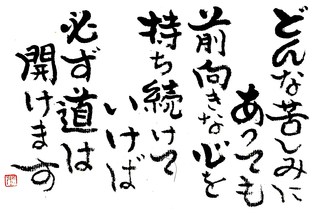 どんな苦しみに
あっても
前向きな心を
持ち続けて
いけば
必ず道は
開けます